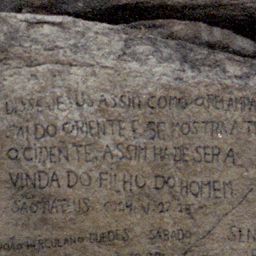 DISSE JESUS ASSIM COMO O RELAMPA
SAI DO ORIENTE E SE MOSTRA
OCIDENTE, ASSIM HA DE SER A
VINDA DO FILHO DO HOMEM
SÃO MATEUS 24 V. 27
JOÃO HERCULANO GUEDES SABADO SEN